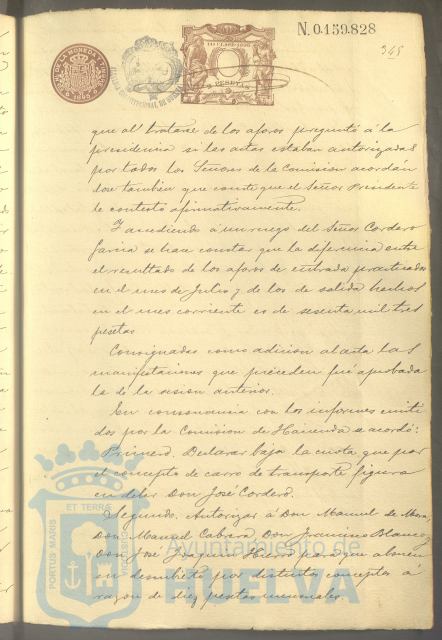 N. 0.159.828
345
11ª CLASE-1895
PESETAS
1895
que al tratarse de los aforos preguntó á la
presidencia si las actas estaban autorizadas
por todos los Señores de la Comision acordán
dose tambien que conste que el Señor Presidente
le contestó afirmativamente.
Y accediendo á un ruego del Señor Cordero
Garcia se hace constar que la diferencia entre
el resultado de los aforos de entrada practicados
en el mes de Julio y de los de salida hechos
en el mes corriente es de sesenta mil tres
pesetas
Consignadas como adicion al acta las
manifestaciones que preceden fué aprobada
la de la sesion anterior.
En consonancia con los informes emiti
dos por la Comision de Hacienda se acordó:
Primero. Declarar baja la cuota que por
el concepto de carro de transporte figura
en deber Don José Cordero.
Segundo. Autorizar á Don Manuel de Mora,
Don Manuel Cabrera, Don Francisco Blanco y
Don José Joaquin para que abonen
su descubierto por distintos conceptos á
razon de diez pesetas mensuales.
PORTUS MARIS ET TERRAE CUSTODIA
Ayuntamiento de
HUELVA